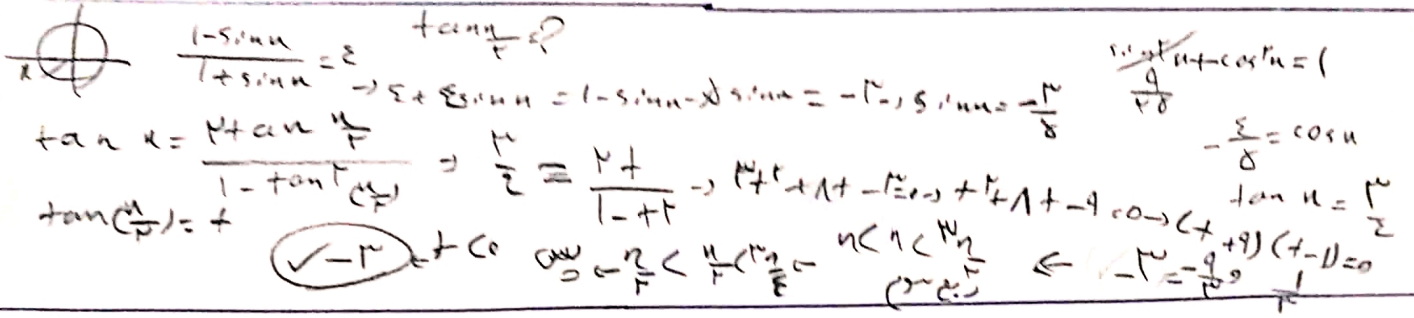 (1-sinx)/(1+sinx) = ۴ tan x/۲ = ?
→ ۴+۴sinx = 1-sinx → ۵sinx = -۳ → sinx = -۳/۵
sin²x+cos²x=1
۹/۲۵
-۴/۵ = cosx
tan x = ۲tan x/۲ / (1-tan²(x/۲)) → ۳/۴ = ۲t/(1-t²) → ۳t²+۸t-۳=۰ → t²+۸t-۹=۰ → (t+۹)(t-1)=۰
tan x = ۳/۴
tan(x/۲) = t
-۳ = -۹/۳ و 1/۳
← π<x<۳π/۲ (ربع سوم)
π/۲ < x/۲ < ۳π/۴ پس t<۰ -۳ ✓